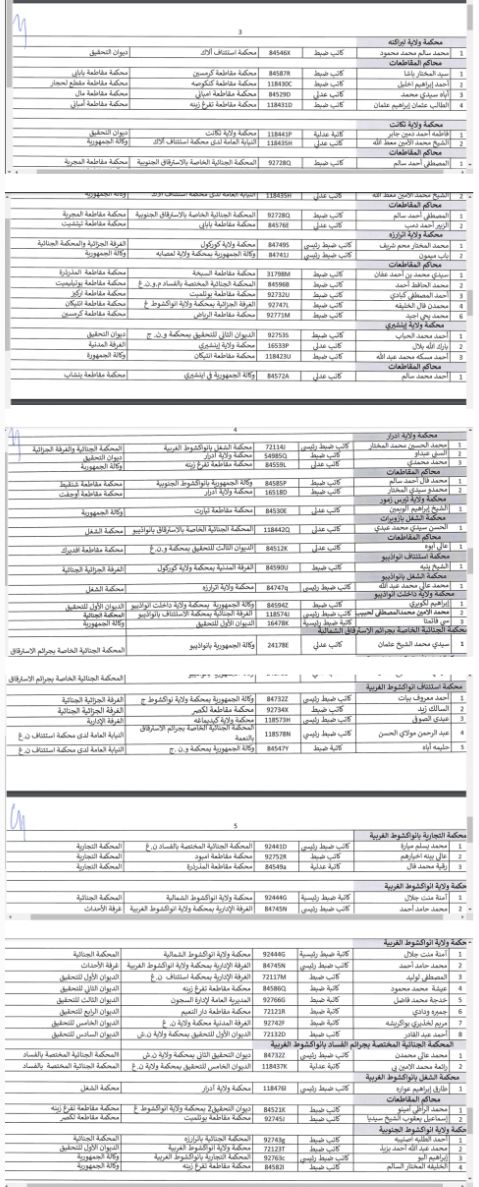 3
محكمة ولاية لبراكنه
1 محمد سالم محمد محمود كاتب ضبط 84546X محكمة استئناف ألاك ديوان التحقيق
محاكم المقاطعات
1 سيد المختار باشا كاتب ضبط 84587R محكمة مقاطعة كرمسين محكمة مقاطعة بابابي
2 أحمد إبراهيم اخليل كاتب ضبط 118430C محكمة مقاطعة كنكوصه محكمة مقاطعة مقطع لحجار
3 أباه سيدي محمد كاتب عدلي 84529D محكمة مقاطعة امباني محكمة مقاطعة مال
4 الطالب عثمان إبراهيم عثمان كاتب ضبط 118431D محكمة مقاطعة تفرغ زينه محكمة مقاطعة
محكمة ولاية تكانت
1 فاطمه أحمد دمين جابر كاتبة عدلية 118441P محكمة ولاية تكانت ديوان التحقيق
2 الشيخ محمد الأمين معط الله كاتب عدلي 118435H النيابة العامة لدى محكمة استئناف ألاك وكالة الجمهورية
محاكم المقاطعات
1 المصطفى أحمد سالم كاتب ضبط 92728Q المحكمة الجنائية الخاصة بالاسترقاق الجنوبية محكمة مقاطعة المجرية
2 الشيخ محمد الأمين معط الله كاتب عدلي 118435H النيابة العامة لدى محكمة استئناف ألاك وكالة الجمهورية
محاكم المقاطعات
1 المصطفى أحمد سالم كاتب ضبط 92728Q المحكمة الجنائية الخاصة بالاسترقاق الجنوبية محكمة مقاطعة المجرية
2 الزبير أحمد دمب كاتب عدلي 84576E محكمة مقاطعة بابابي محكمة مقاطعة تيشيت
محكمة ولاية اترارزه
1 محمد المختار محم شريف كاتب ضبط رئيسي 84749S محكمة ولاية كوركول الغرفة الجزائية والمحكمة الجنائية
2 باب ميمون كاتب ضبط رئيسي 84741J وكالة الجمهورية بمحكمة ولاية لعصابه وكالة الجمهورية
محاكم المقاطعات
1 سيدي محمد بن أحمد عفان كاتب ضبط 31798M محكمة مقاطعة السبخة محكمة مقاطعة المذرذرة
2 محمد الحافظ أحمد كاتب ضبط 84596B المحكمة الجنائية المختصة بالفساد م.و.ن.غ محكمة مقاطعة بوتلميت
3 أحمد المصطفى كبادي كاتب ضبط 92732U محكمة مقاطعة بوتلميت محكمة مقاطعة اركيز
4 محمدن فال الخليفه كاتب ضبط 92747L الغرفة الجزائية بمحكمة ولاية انواكشوط غ محكمة مقاطعة انتيكان
6 محمد يحي اجيد كاتب ضبط 92771M محكمة مقاطعة الرياض محكمة مقاطعة كرمسين
محكمة ولاية إينشيري
1 أحمد محمد الحباب كاتب ضبط 92753S الديوان الثاني للتحقيق بمحكمة و.ن. ج ديوان التحقيق
2 بارك الله بلال كاتب عدلي 16533P محكمة ولاية إينشيري الغرفة المدنية
3 أحمد مسكه محمد عبد الله كاتب عدلي 118423U محكمة مقاطعة انتيكان وكالة الجمهورة
محاكم المقاطعات
1 أحمد محمد سالم كاتب عدلي 84572A وكالة الجمهورية في اينشيري محكمة مقاطعة بنشاب
4
محكمة ولاية آدرار
1 محمد الحسين محمد المختار كاتب ضبط رئيسي 72114J محكمة الشغل بانواكشوط الغربية المحكمة الجنائية والغرفة الجزائية
2 السني عبداو كاتب ضبط 54985Q محكمة ولاية آدرار ديوان التحقيق
3 محمد محمدي كاتب عدلي 84559L محكمة مقاطعة تفرغ زينه وكالة الجمهورية
محاكم المقاطعات
1 محمد فال أحمد سالم كاتب ضبط 84585P وكالة الجمهورية بانواكشوط الجنوبية محكمة مقاطعة شنقيط
2 محمدو سيدي المختار كاتب ضبط 16518D محكمة ولاية آدرار محكمة مقاطعة أوجفت
محكمة ولاية تيرس زمور
1 الشيخ إبراهيم الويمين كاتب عدلي 84530E محكمة مقاطعة تيارت وكالة الجمهورية
محكمة الشغل بازويرات
1 الحسن سيدي محمد عبدي كاتب عدلي 118442Q المحكمة الجنائية الخاصة بالاسترقاق بانواذيبو محكمة الشغل
محاكم المقاطعات
1 عالي ابوه كاتب عدلي 84512K الديوان الثالث للتحقيق بمحكمة و.ن.غ محكمة مقاطعة افديرك
محكمة استئناف انواذيبو
1 الشيخ ينيه كاتب ضبط 84590U الغرفة المدنية بمحكمة ولاية كوركول الغرفة الجزائية الجنائية
محكمة الشغل بانواذيبو
1 محمد عالي محمد عبد الله كاتب ضبط رئيسي 84747q محكمة ولاية اترارزه محكمة الشغل
محكمة ولاية داخلت انواذيبو
1 إبراهيم لكويري كاتب ضبط 84594Z وكالة الجمهورية بمحكمة ولاية داخلت انواذيبو الديوان الأول للتحقيق
2 محمد الأمين محمدالمصطفى لحبيب كاتب ضبط رئيسي 118574J الغرفة الجنائية بمحكمة الاستئناف بانواذيبو المحكمة الجنائية
3 سي فاتمتا كاتبة ضبط رئيسية 16478K الديوان الأول للتحقيق وكالة الجمهورية
المحكمة الجنائية الخاصة بجرائم الاسترقاق الشمالية
1 سيدي محمد الشيخ عثمان كاتب عدلي 24178E وكالة الجمهورية بانواذيبو المحكمة الجنائية الخاصة بجرائم الاسترقاق
المحكمة الجنائية الخاصة بجرائم الاسترقاق
محكمة استئناف انواكشوط الغربية
1 أحمد معروف بيات كاتب ضبط 84732Z وكالة الجمهورية بمحكمة ولاية نواكشوط ج الغرفة الجزائية الجنائية
2 السالك زيد كاتب ضبط 92734X محكمة مقاطعة لكصر الغرفة الجزائية الجنائية
3 عبدي الصوفي كاتب ضبط رئيسي 118573H محكمة ولاية كيديماغه الغرفة الإدارية
4 عبد الرحمن مولاي الحسن كاتب ضبط رئيسي 118578N المحكمة الجنائية الخاصة بجرائم الاسترقاق بالنعمة النيابة العامة لدى محكمة استئناف ن.غ
5 حليمه أباه كاتبة ضبط 84547Y وكالة الجمهورية بمحكمة و.ن.ج النيابة العامة لدى محكمة استئناف ن.غ
5
محكمة التجارية بانواكشوط الغربية
1 محمد يسلم مياره كاتب ضبط رئيسي 92441D المحكمة الجنائية المختصة بالفساد ن.غ المحكمة التجارية
2 عالي بينه اخيارهم كاتب ضبط 92752R محكمة مقاطعة امبود المحكمة التجارية
3 رقية محمد فال كاتبة عدلية 84549a محكمة مقاطعة المذرذرة المحكمة التجارية
محكمة ولاية انواكشوط الغربية
1 آمنة منت جلال كاتبة ضبط رئيسية 92444G محكمة ولاية انواكشوط الشمالية المحكمة الجنائية
2 محمد حامد أحمد كاتب ضبط رئيسي 84745N الغرفة الإدارية بمحكمة ولاية انواكشوط الغربية غرفة الأحداث
محكمة ولاية انواكشوط الغربية
1 آمنة منت جلال كاتبة ضبط رئيسية 92444G محكمة ولاية انواكشوط الشمالية المحكمة الجنائية
2 محمد حامد أحمد كاتب ضبط رئيسي 84745N الغرفة الإدارية بمحكمة ولاية انواكشوط الغربية غرفة الأحداث
3 المصطفى لوليد كاتب ضبط 72117M الغرفة الإدارية بمحكمة استئناف ن.غ الديوان الأول للتحقيق
4 عيشة محمد محمود كاتبة ضبط 84586Q محكمة مقاطعة تفرغ زينه الديوان الثاني للتحقيق
5 خدجة محمد فاضل كاتبة ضبط 92766G المديرية العامة لإدارة السجون الديوان الثالث للتحقيق
6 جميره ودادي كاتبة ضبط 72121R محكمة مقاطعة دار النعيم الديوان الرابع للتحقيق
7 مريم لخليزي بواكريشه كاتبة ضبط 92742F الغرفة المدنية محكمة ولاية ن. غ الديوان الخامس للتحقيق
8 أحمد عبد القادر كاتب ضبط 72132D الديوان الأول للتحقيق بمحكمة ولاية ن.ش الديوان السادس للتحقيق
المحكمة الجنائية المختصة بجرائم الفساد بانواكشوط الغربية
1 محمد عالي محمدن كاتب ضبط رئيسي 84732Z ديوان التحقيق الثاني بمحكمة ولاية ن.ش المحكمة الجنائية المختصة بالفساد
2 رائعة محمد الامين بي كاتبة عدلية 118437K الديوان الخامس للتحقيق بمحكمة ولاية ن.غ المحكمة الجنائية المختصة بالفساد
محكمة الشغل بانواكشوط الغربية
1 طارق إبراهيم عواره كاتب ضبط رئيسي 118476I محكمة ولاية آدرار محكمة الشغل
محاكم المقاطعات
1 محمد الراظي امينو كاتب ضبط 84521K ديوان التحقيق2 بمحكمة ولاية انواكشوط غ محكمة مقاطعة تفرغ زينه
2 إسماعيل يعقوب الشيخ سيديا كاتب ضبط 92745J محكمة مقاطعة بوتلميت محكمة مقاطعة لكصر
محكمة ولاية انواكشوط الجنوبية
1 أحمد الطلبه اصنيبه كاتب ضبط رئيسي 92743g المحكمة الجنائية باترارزه المحكمة الجنائية
2 محمد عبد الله أحمد يزيد كاتب ضبط 72123T محكمة ولاية انواكشوط الغربية الديوان الأول للتحقيق
3 إبراهيم اليو كاتب ضبط رئيسي 92763c المحكمة التجارية بانواكشوط الغربية وكالة الجمهورية
4 الخليفه المختار السالم كاتب ضبط 84582I محكمة مقاطعة تفرغ زينه وكالة الجمهورية